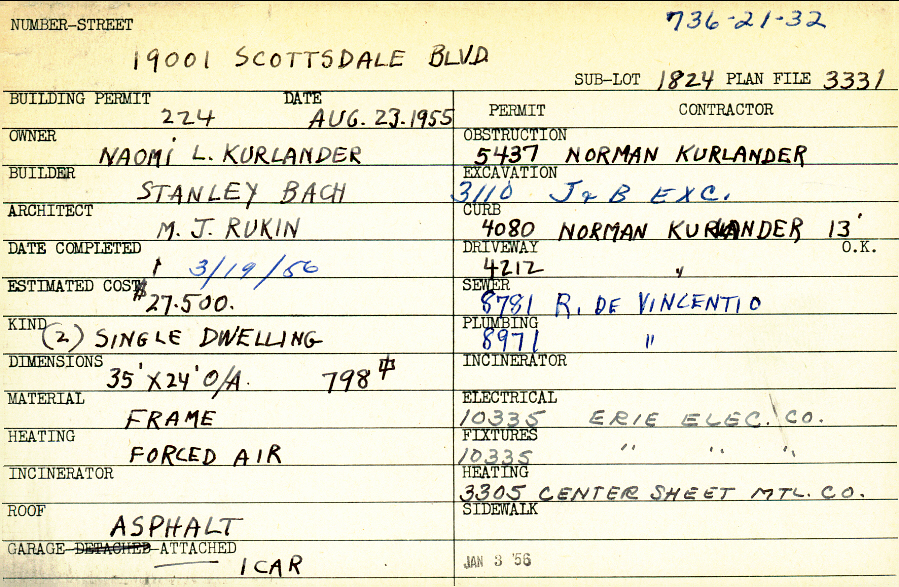 NUMBER-STREET
736-21-32
19001 SCOTTSDALE BLVD
SUB-LOT 1824 PLAN FILE 3331
BUILDING PERMIT DATE
224 AUG. 23. 1955
OWNER
NAOMI L. KURLANDER
BUILDER
STANLEY BACH
ARCHITECT
M. J. RUKIN
DATE COMPLETED
3/19/56
ESTIMATED COST
$27.500.
KIND
(2) SINGLE DWELLING
DIMENSIONS
35' X 24' O/A. 798
MATERIAL
FRAME
HEATING
FORCED AIR
INCINERATOR
ROOF
ASPHALT
GARAGE-DETACHED-ATTACHED
1 CAR
PERMIT CONTRACTOR
OBSTRUCTION
5437 NORMAN KURLANDER
EXCAVATION
3110 J & B EXC.
CURB
4080 NORMAN KURLANDER 13'
DRIVEWAY O.K.
4212 "
SEWER
8781 R. DE VINCENTIO
PLUMBING
8971 "
INCINERATOR
ELECTRICAL
10335 ERIE ELEC. CO.
FIXTURES
10335 " " "
HEATING
3305 CENTER SHEET MTL. CO.
SIDEWALK
JAN 3 '56